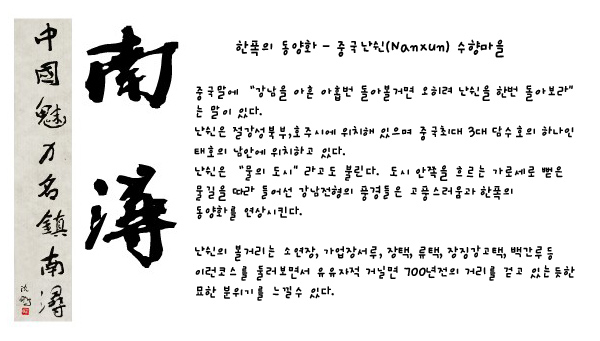 中國魅力名鎮南潯
南潯
한폭의 동양화 - 중국난쉰(Nanxun) 수향마을
중국말에 "강남을 아흔 아홉번 돌아볼거면 오히려 난쉰을 한번 돌아보라"
는 말이 있다.
난쉰은 절강성북부,호주시에 위치해 있으며 중국최대 3대 담수호의 하나인
태호의 남안에 위치하고 있다.
난쉰은 "물의 도시" 라고도 불린다. 도시 안쪽을 흐르는 가로세로 뻗은
물길을 따라 들어선 강남전형의 풍경들은 고풍스러움과 한폭의
동양화를 연상시킨다.
난쉰의 볼거리는 소연장, 가업장서루, 장택, 류택, 장징강고택, 백간루등
이런코스를 둘러보면서 유유자적 거닐면 700년전의 거리를 걷고 있는듯한
묘한 분위기를 느낄수 있다.